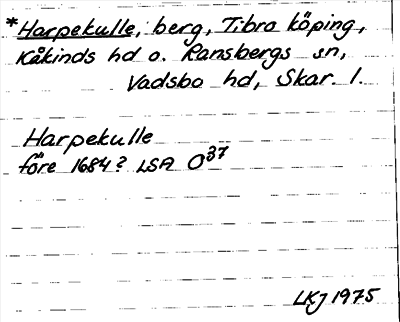 *Harpekulle, berg, Tibro köping,
Kåkinds hd o. Ransbergs sn,
Vadsbo hd, Skar. l.
Harpekulle
före 1684? LSA O37
LKJ 1975